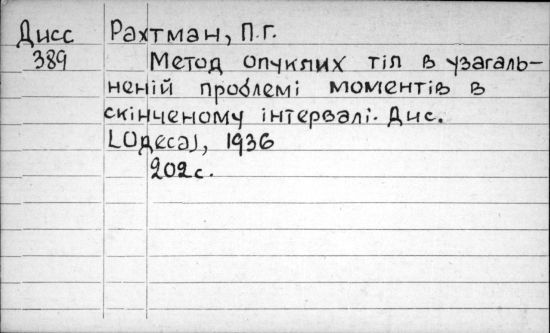 Дисс Рахтман, П.Г.
389 Метод опуклих тіл в узагаль-
неній проблемі моментів в
скінченому інтервалі. Дис.
[Одеса], 1936
202с.